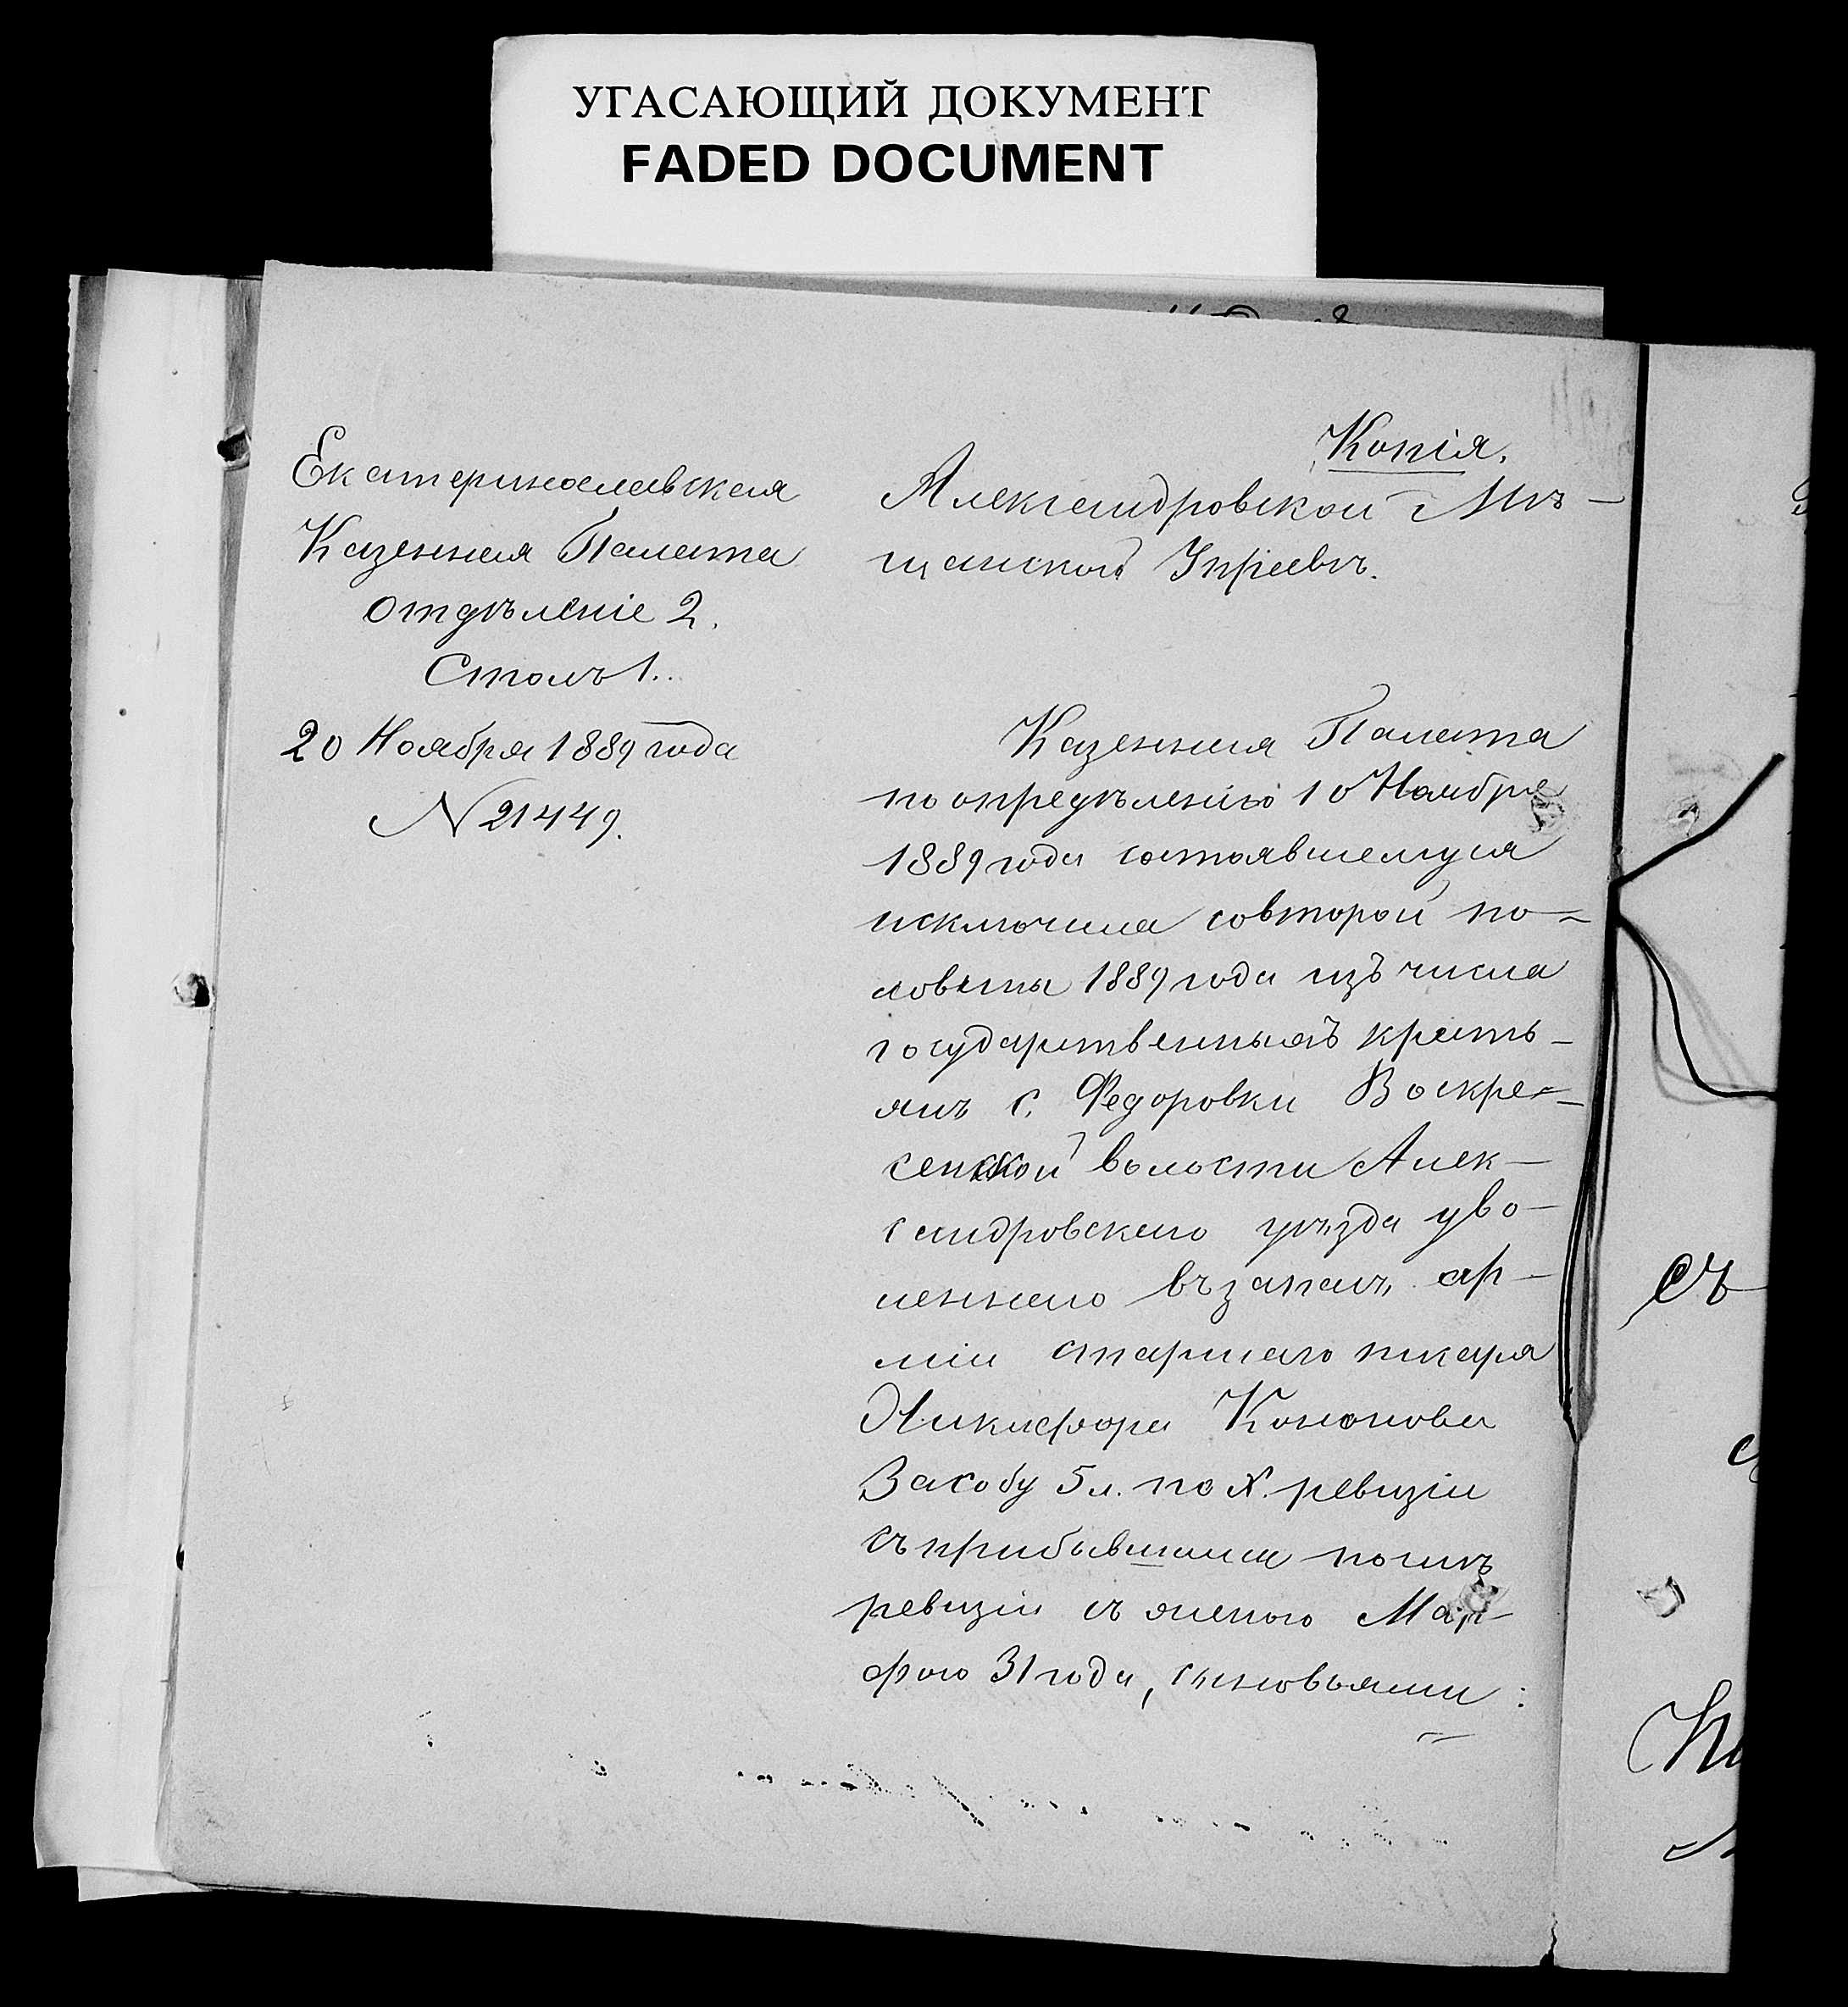 УГАСАЮЩИЙ ДОКУМЕНТ
FADED DOCUMENT
Екатеринославская
Казенная Палата
Отдѣленіе 2.
Столъ 1.
20 Ноября 1889 года
N 21449.
Копія.
Александровской Мѣ-
щанской Управѣ.
Казенная Палата
по опредѣленію 10 Ноября
1889 года состоявшемуся
исключила со второй по-
ловины 1889 года изъ числа
государственныхъ кресть-
янъ с. Федоровки Воскре-
сенской волости Алек-
сандровскаго уѣзда уво-
леннаго въ запасъ ар-
міи старшаго писаря
Никифора Кононова
Засобу 5 л. по X. ревизіи
съ прибывшими послѣ
ревизіи съ женою Мар-
фою 31 года, сыновьями:
съ